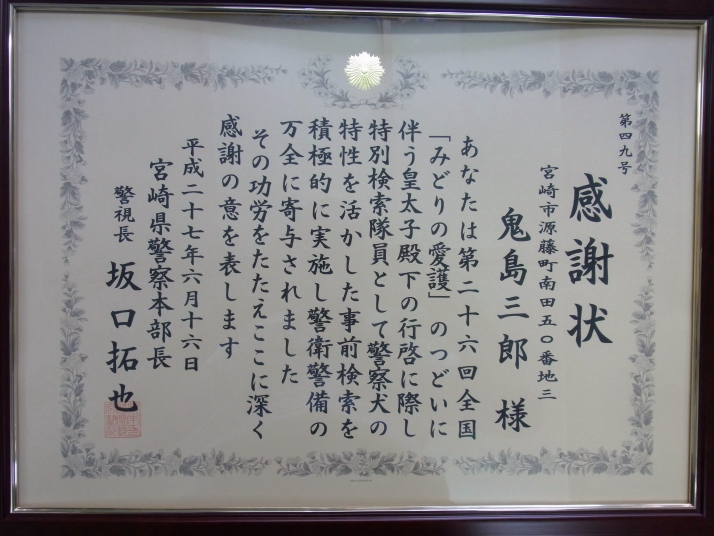 第四九号
感謝状
宮崎市源藤町南田五〇番地三
鬼島三郎 様
あなたは第二十六回全国
「みどりの愛護」のつどいに
伴う皇太子殿下の行啓に際し
特別検索隊員として警察犬の
特性を活かした事前検索を
積極的に実施し警衛警備の
万全に寄与されました
その功労をたたえここに深く
感謝の意を表します
平成二十七年六月十六日
宮崎県警察本部長
警視長 坂口拓也